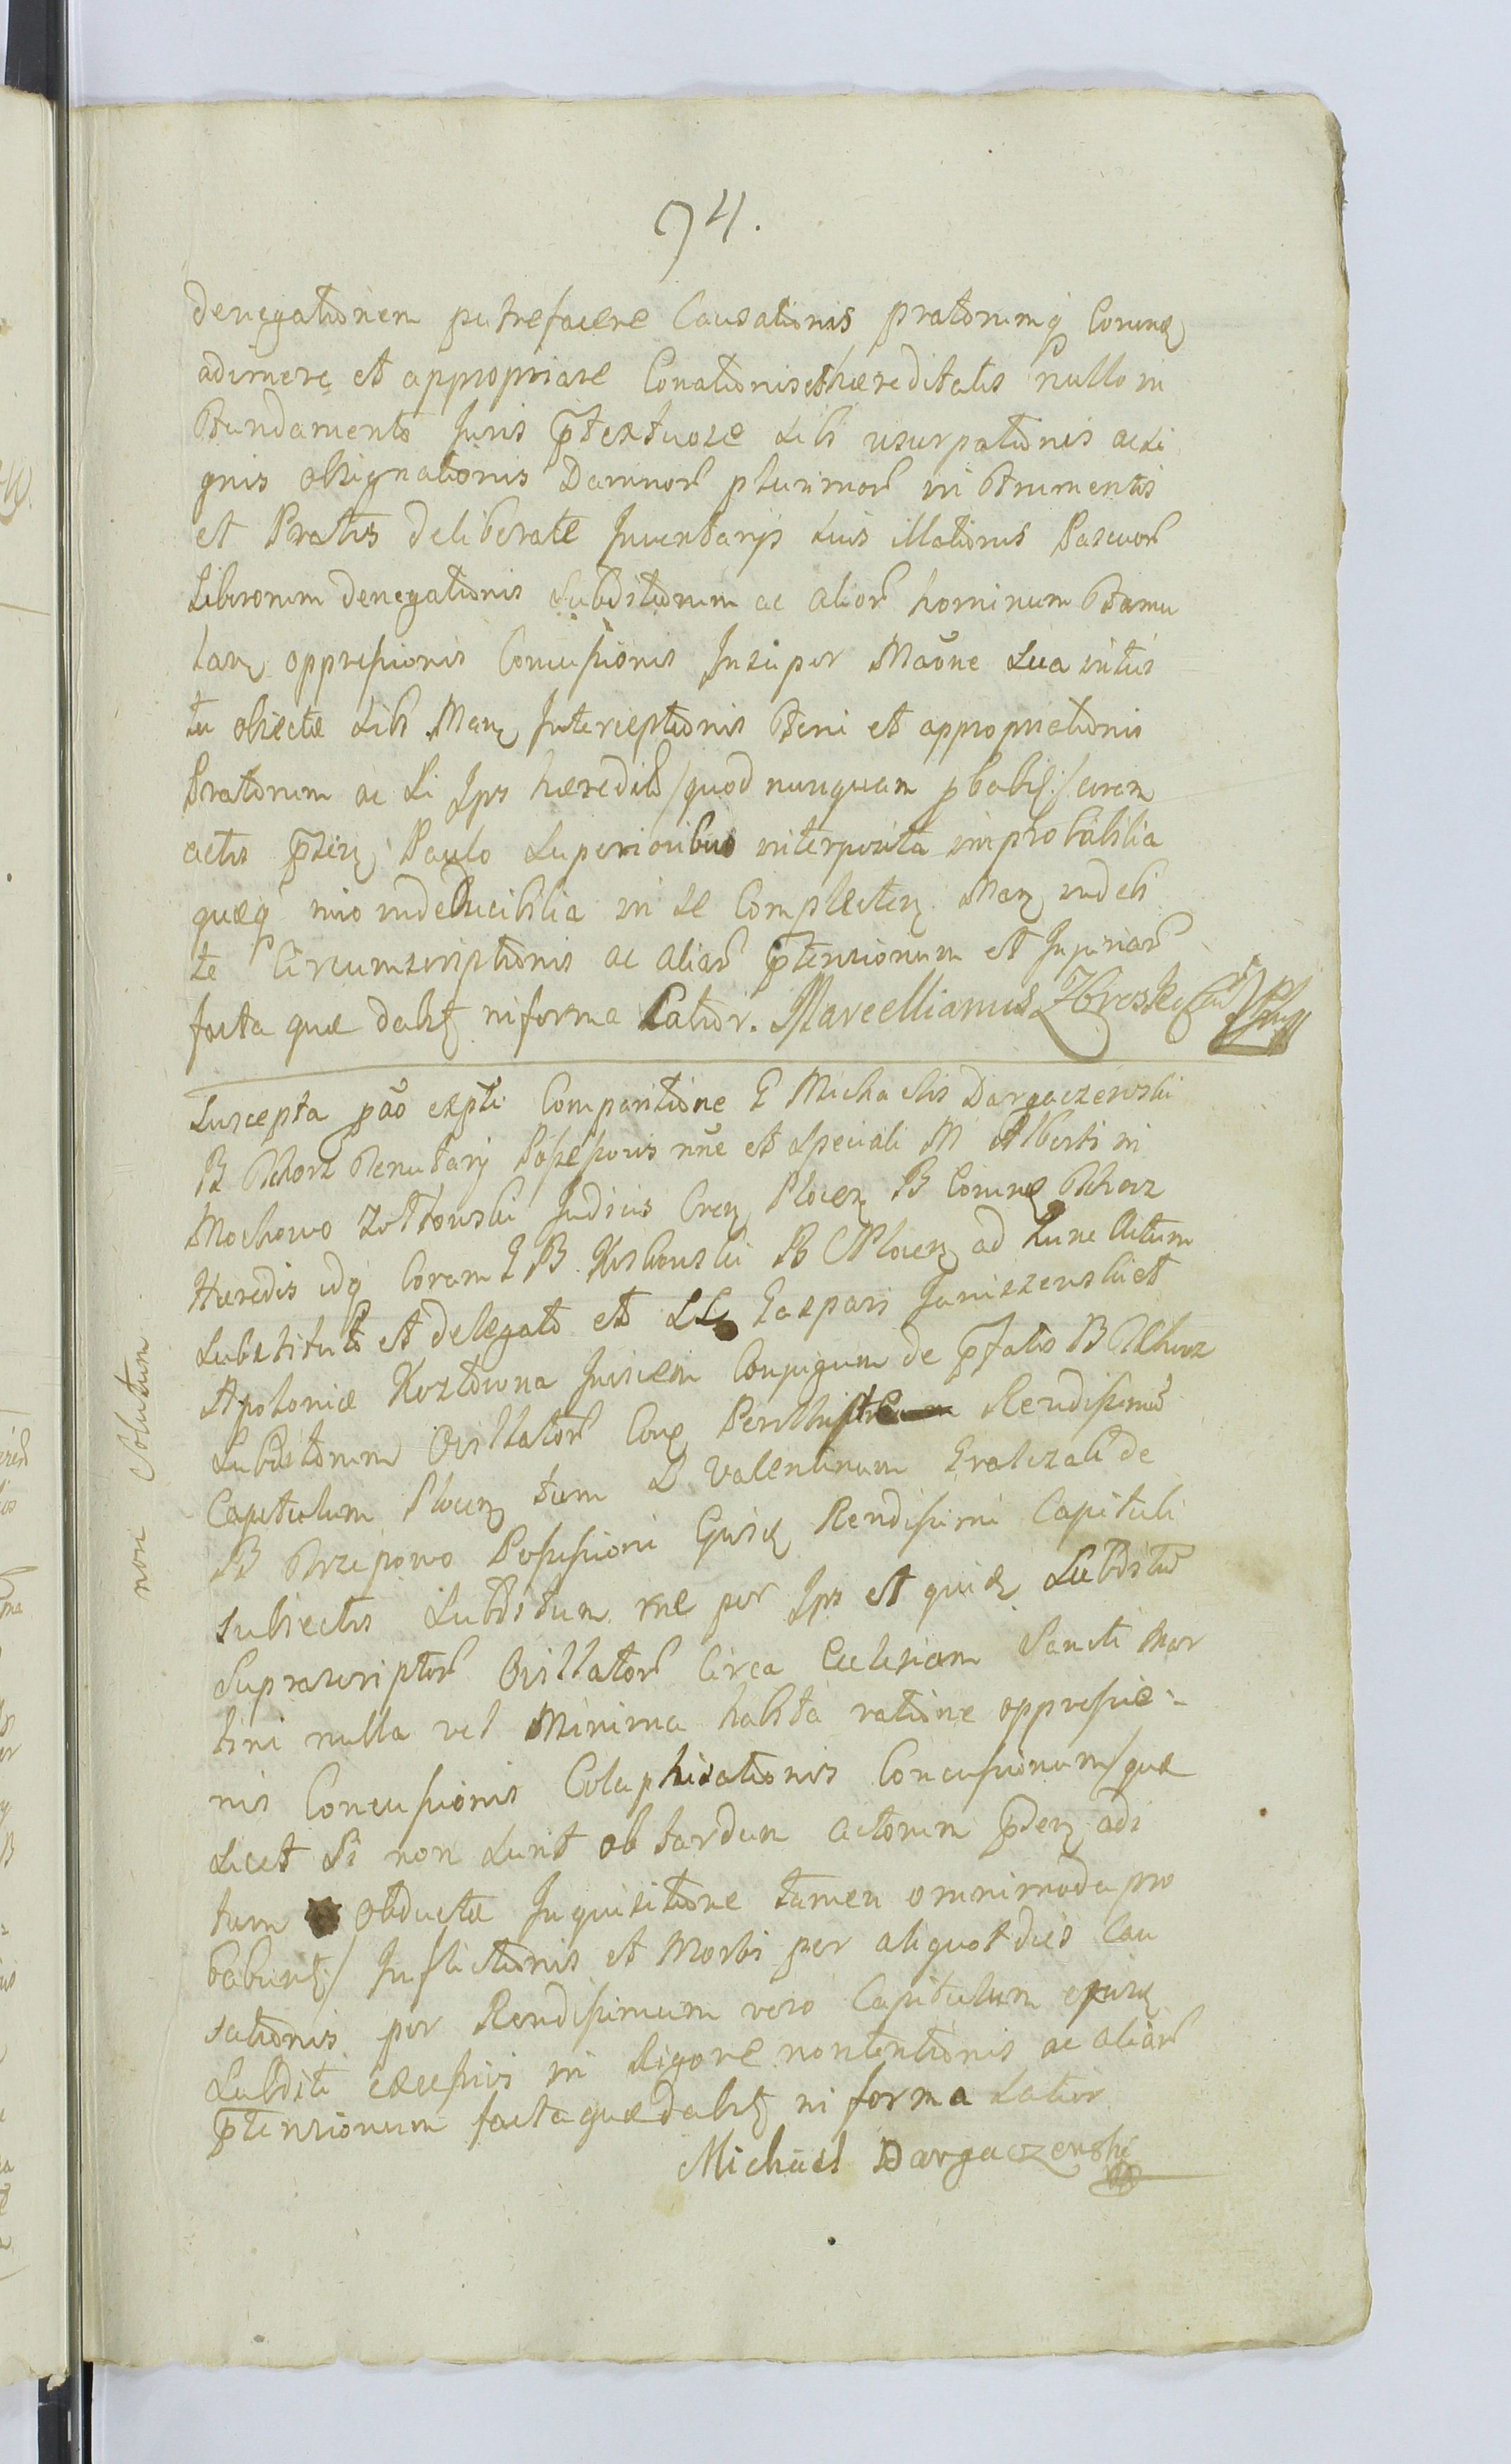 74.
denegationem putrefacere Causationis pratorumq Eorund
adimere et appropriare Conationis et hæreditatis nullo in
Fundamento Juris ptextuose sibi usurpationis ac Li
gnis obsignationis Damnor plurimor in Frumentis
et Pratis deliberate Inventarijs suis illationis Pascuor
Liberorum denegationis Subditorum ac alior hominum Famu
lar oppressionis Concussionis Insuper Maõne sua intus
tu obiectæ sibi Man Interceptionis Feni et appropriationis
Pratorum ac Si Ips hæredib /quod nunquam pbabit:/ coram
actis psen Paulo Superioribus interposita improbabilia
quæq nio indeducibilia in se Complecten Man indebi
te Circumscriptionis ac aliar ptensionum et Injuriar
facta quæ dabit in forma Latior. Marcellianus Zbroski
Suscepta pão expti Comparitione G Michaelis Dargaczewski
B Tchorz Tenutarij Possessoris nñe et speciali M Alberti in
Mochowo Zółtowski Judicis Cren Plocen B Eorund Tchorz
Hæredis idq Coram G B. Kisłowski B C Plocen ad hunc Actum
Substituto et delegato et LL Gaspari Janiszewski et
Apoloniæ Kozłowna Invicem Conjugum de pfatis B Tchorz
Subditorum Ovillator Con Perillustre Rendissimũ
Capitulum Plocen tum L Valentinum Gralczak de
B Trzepowo Possessioni Ejusd Rendissimi Capituli
subiectis Subditum rne per Ips et quid Subditũ
Suprascriptor Ovillator Circa Ecclesiam Sancti Mar
tini nulla vel Minima habita ratione oppressio-
nis Concussionis Colaphisationis Concussionum /quæ
Licet Si non sunt ob tardum actorum psen adi
tum obductæ Inquisitione tamen omnimoda pro
babunt/ Inflictionis et Morbi per aliquot dies Cau
sationis per Rendissimum vero Capitulum ejusd
Subditi excessivi in Rigore nontentionis ac aliar
ptensionum facta quæ dabit in forma Latior
Michael Dargaczewski
non Solutum